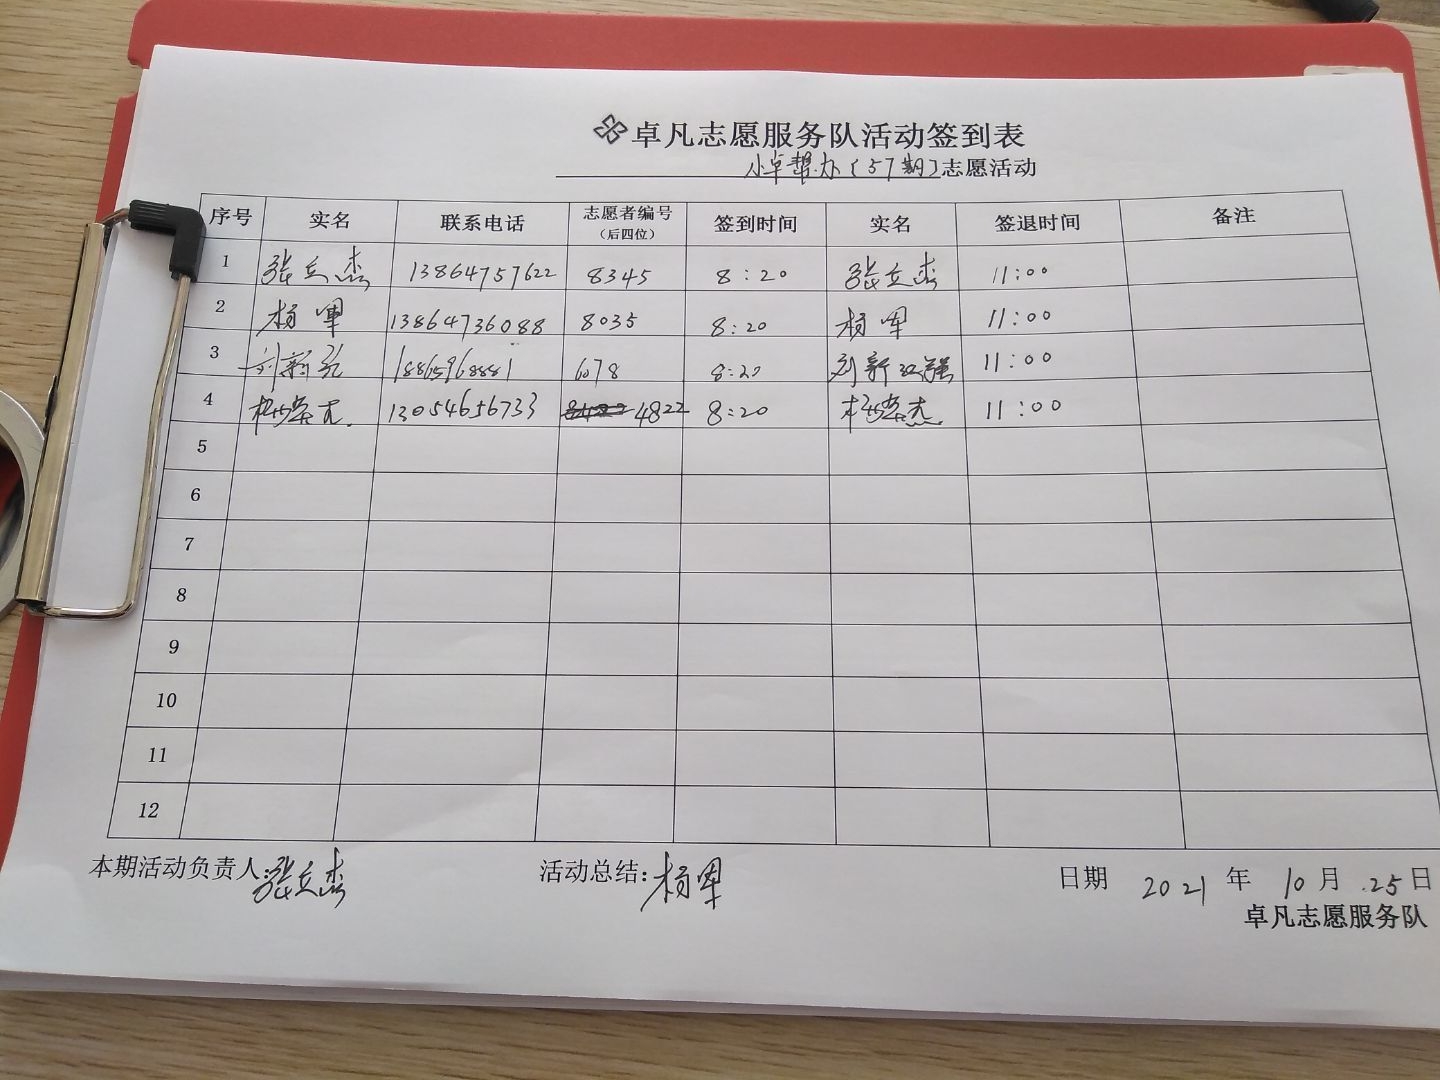 卓凡志愿服务队活动签到表
小卓帮办(57期)志愿活动
序号 实名 联系电话 志愿者编号(后四位) 签到时间 实名 签退时间 备注
1 张立杰 13864757622 8345 8:20 张立杰 11:00
2 杨军 13864736088 8035 8:20 杨军 11:00
3 刘新 6078 8:20 刘新 11:00
4 13054656733 4822 8:20 11:00
5
6
7
8
9
10
11
12
本期活动负责人:张立杰 活动总结:杨军 日期 2021年10月25日
卓凡志愿服务队